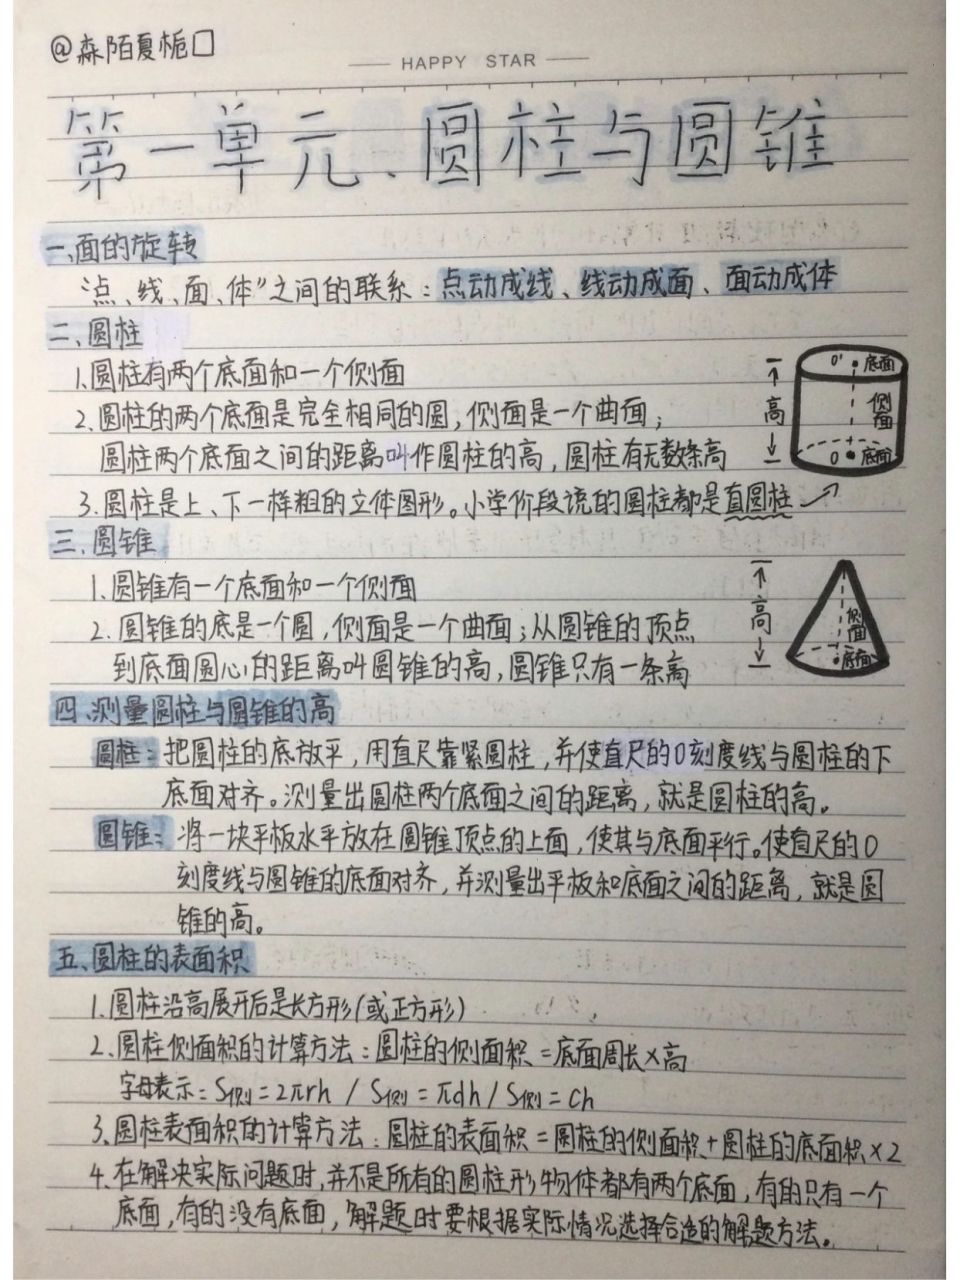 @森陌夏栀口
HAPPY STAR
第一单元、圆柱与圆锥
一、面的旋转
“点、线、面、体”之间的联系：点动成线、线动成面、面动成体
二、圆柱
1.圆柱有两个底面和一个侧面
2.圆柱的两个底面是完全相同的圆，侧面是一个曲面；
圆柱两个底面之间的距离叫作圆柱的高，圆柱有无数条高
3.圆柱是上、下一样粗的立体图形。小学阶段说的圆柱都是直圆柱
高
O' 底面
侧面
O 底面
三、圆锥
1.圆锥有一个底面和一个侧面
2.圆锥的底是一个圆，侧面是一个曲面；从圆锥的顶点
到底面圆心的距离叫圆锥的高，圆锥只有一条高
高
侧面
底面
四、测量圆柱与圆锥的高
圆柱：把圆柱的底放平，用直尺靠紧圆柱，并使直尺的0刻度线与圆柱的下
底面对齐。测量出圆柱两个底面之间的距离，就是圆柱的高。
圆锥：将一块平板水平放在圆锥顶点的上面，使其与底面平行。使直尺的0
刻度线与圆锥的底面对齐，并测量出平板和底面之间的距离，就是圆
锥的高。
五、圆柱的表面积
1.圆柱沿高展开后是长方形（或正方形）
2.圆柱侧面积的计算方法：圆柱的侧面积=底面周长×高
字母表示：S侧=2πrh / S侧=πdh / S侧=Ch
3.圆柱表面积的计算方法：圆柱的表面积=圆柱的侧面积+圆柱的底面积×2
4.在解决实际问题时，并不是所有的圆柱形物体都有两个底面，有的只有一个
底面，有的没有底面，解题时要根据实际情况选择合适的解题方法。